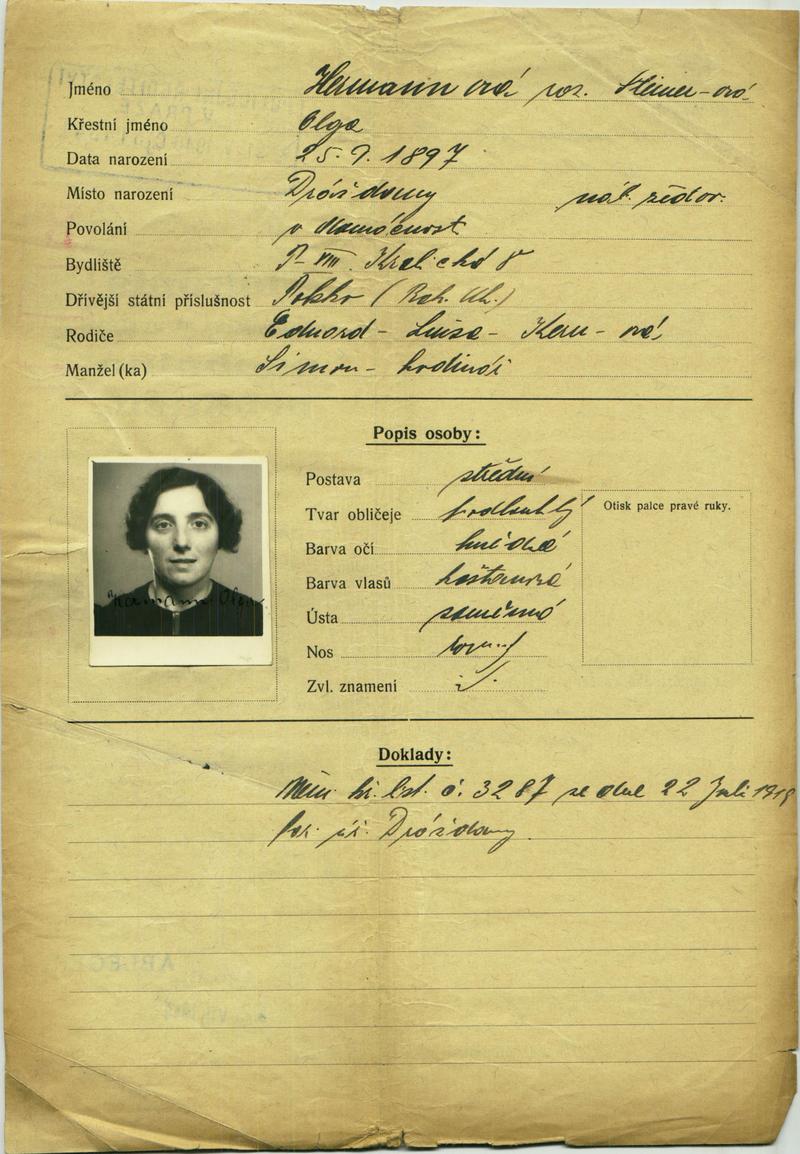 Jméno Hermannová roz. Steiner-ová
Křestní jméno Olga
Data narození 25. 9. 1897
Místo narození náb. židov.
Povolání v domácnosti
Bydliště P-VIII. 8
Dřívější státní příslušnost
Rodiče Eduard - Luisa - Kern-ová
Manžel (ka) Simon - hodinář
Popis osoby:
Postava střední
Tvar obličeje podlouhlý
Barva očí hnědá
Barva vlasů kaštanová
Ústa souměrná
Nos
Zvl. znamení
Otisk palce pravé ruky.
Hermann Olga
Doklady:
list. č. 3287 ze dne 22 Juli